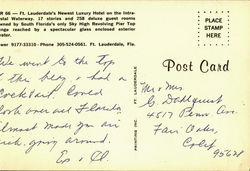 R 66 — Ft. Lauderdale's Newest Luxury Hotel on the Intra-
oastal Waterway. 17 stories and 258 deluxe guest rooms
owned by South Florida's only Sky High Revolving Pier Top
unge reached by a spectacular glass enclosed exterior
vator.
ower 9177-33310 - Phone 305-524-0561. Ft. Lauderdale, Fla.
PLACE
STAMP
HERE
Post Card
FT. LAUDERDALE
We went to the top
of this bldg & had a
Cocktail. Could
look over all Florida
Almost made you air
sick going around.
Es & Al.
Mr & Mrs
G Dahlquist
4517 Penn. Ave.
Fair Oaks,
Calif
95628